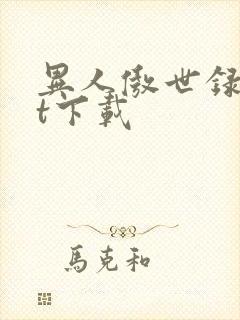 異人傲世録
t下載
馬克和